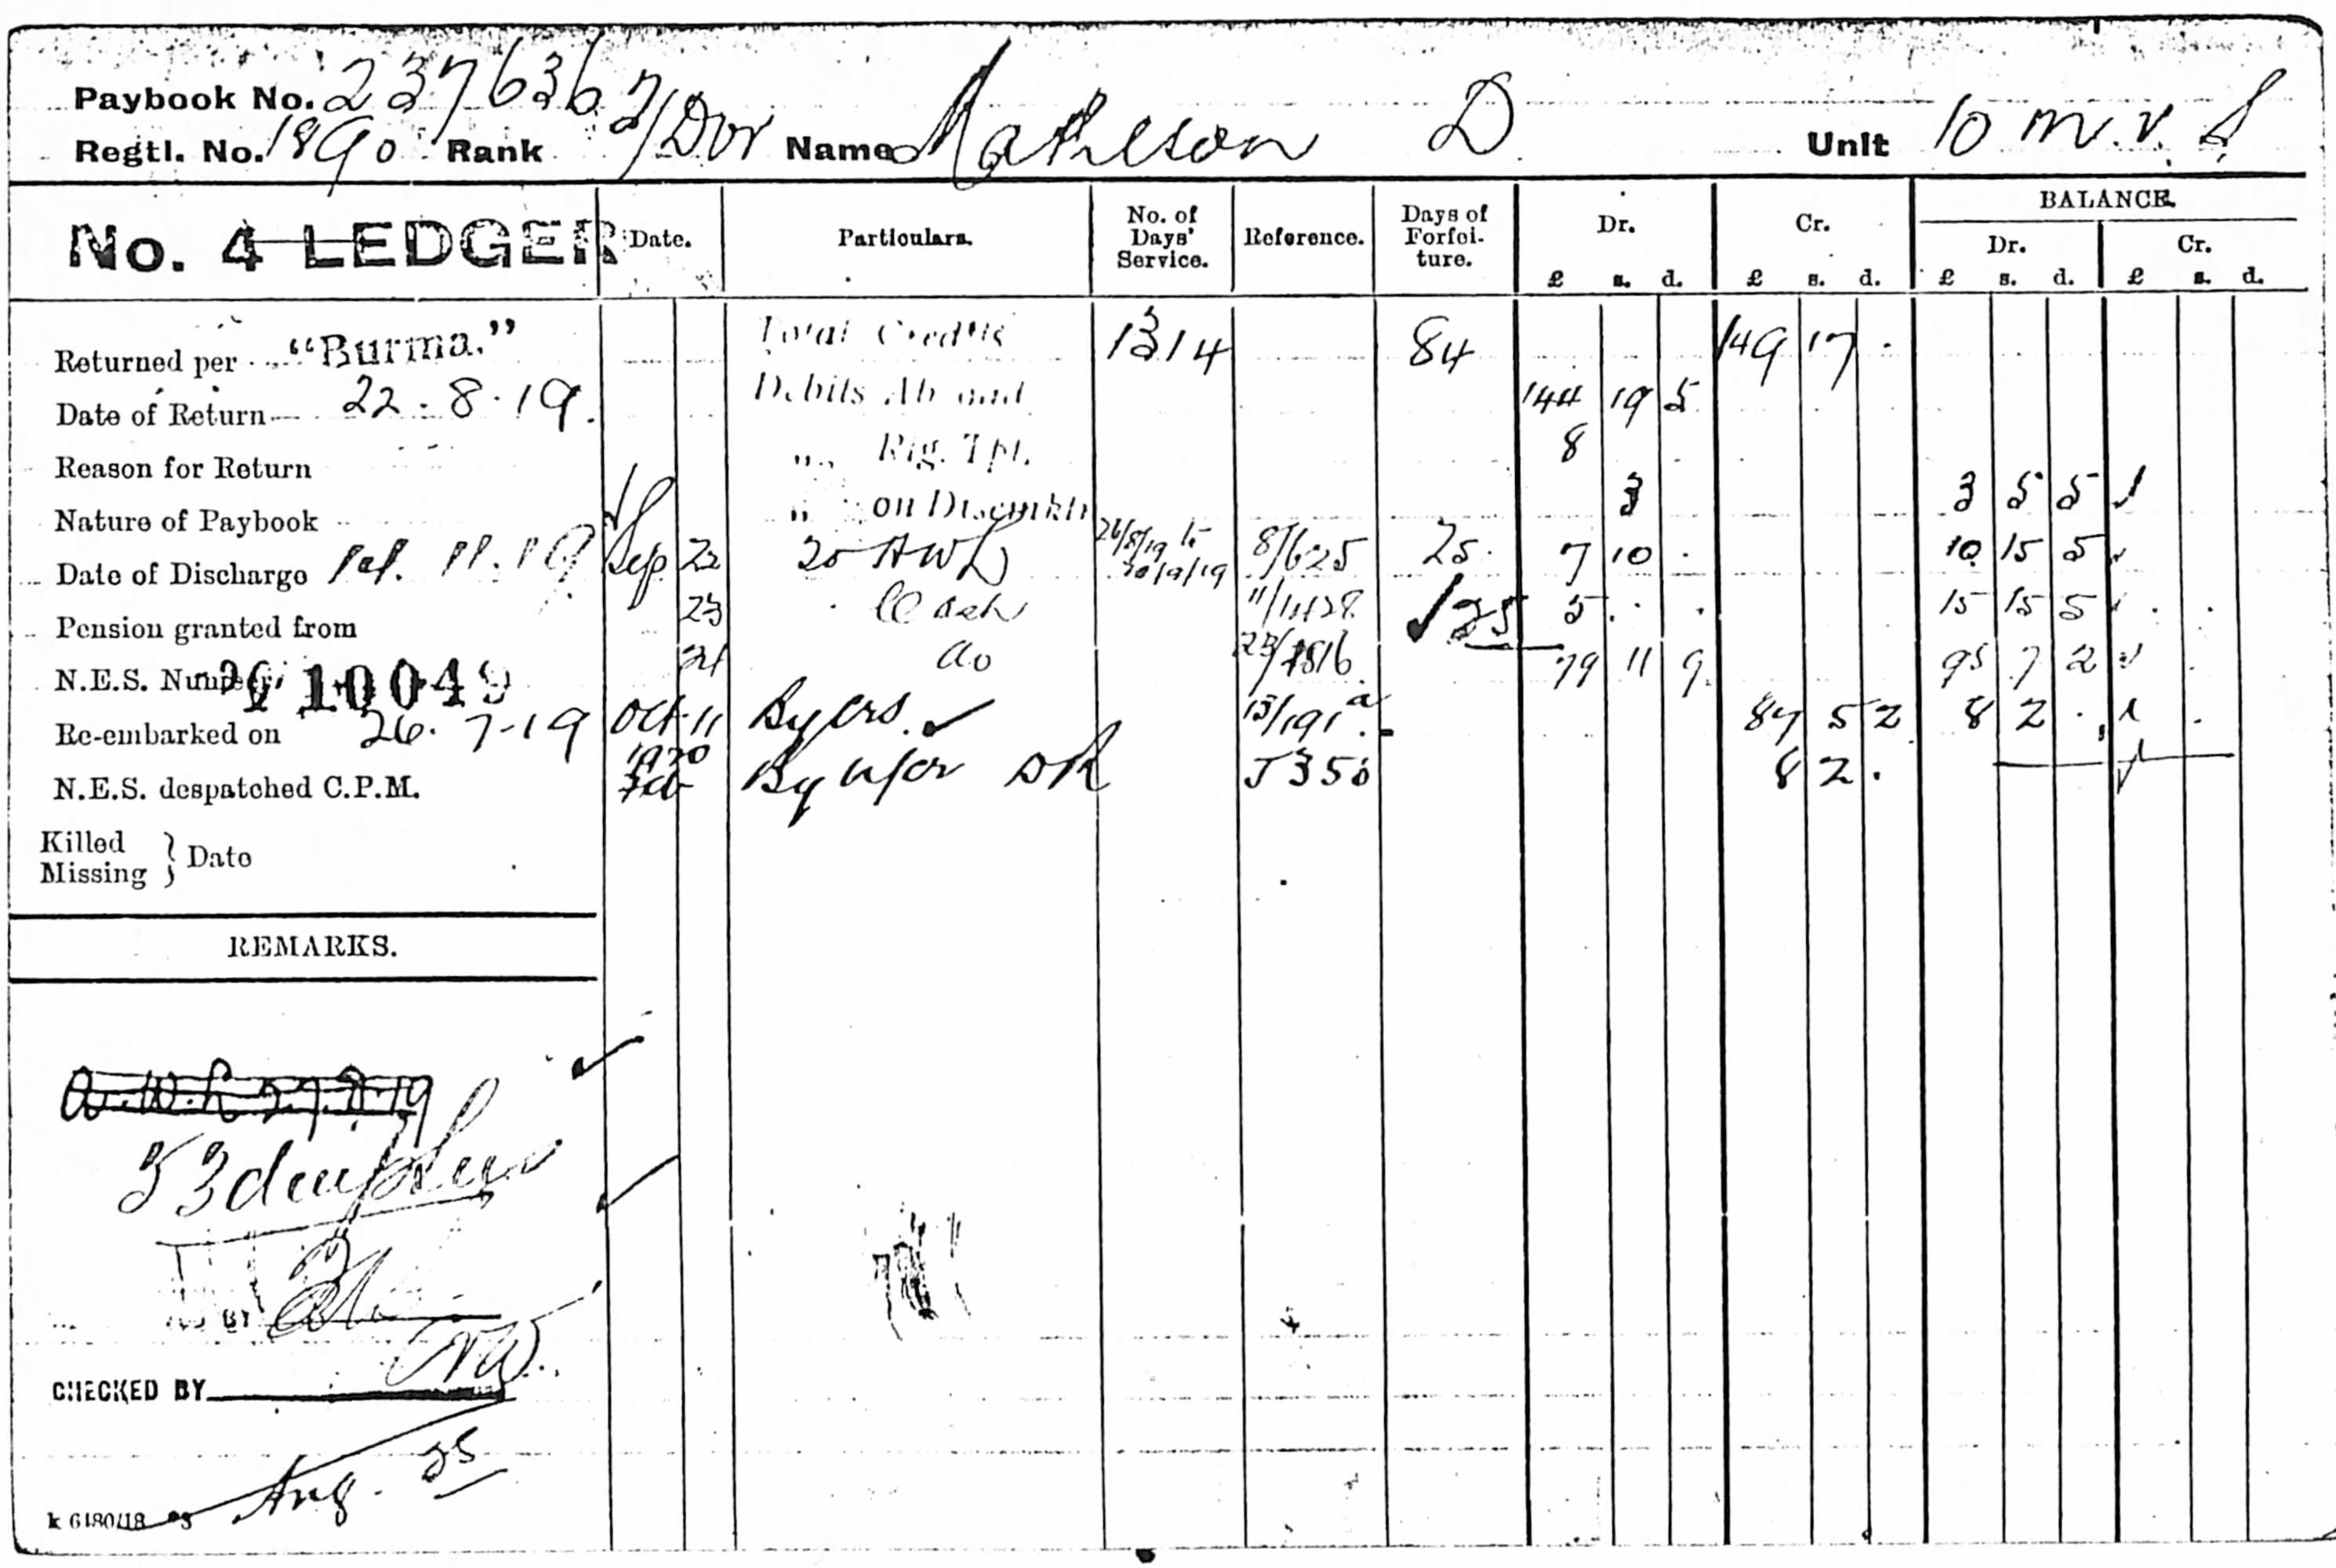 Paybook No. 237636
Regtl. No. 1890 Rank T/Dvr Name Matheson D. Unit 10 M.V.S.
No. 4 LEDGER Date. Particulars. No. of Days' Service. Reference. Days of Forfeiture. Dr. £ s. d. Cr. £ s. d. BALANCE. Dr. £ s. d. Cr. £ s. d.
Returned per "Burma." Total Credits 1314 84 149 17 .
Date of Return 22.8.19. Debits Abroad 144 19 5
Reason for Return ,, Rig. Tpt. 8
Nature of Paybook ,, on Disembktn 3 3 5 5
Date of Discharge 11.19 Sep 22 25 AWL 8/625 25 7 10 . 10 15 5
Pension granted from 23 Cash 25 5 . . 15 15 5
N.E.S. Number 10049 24 do 79 11 9 95 7 2
Re-embarked on 26.7.19 Oct 11 By ers. 13/191a 87 5 2 8 2 .
N.E.S. despatched C.P.M. 1920 Feb By nfer DR J350 8 2 .
Killed
Missing } Date
REMARKS.
A.W.L 27.8.19
53 days
BY
CHECKED BY
Aug. 25
k 6480/18